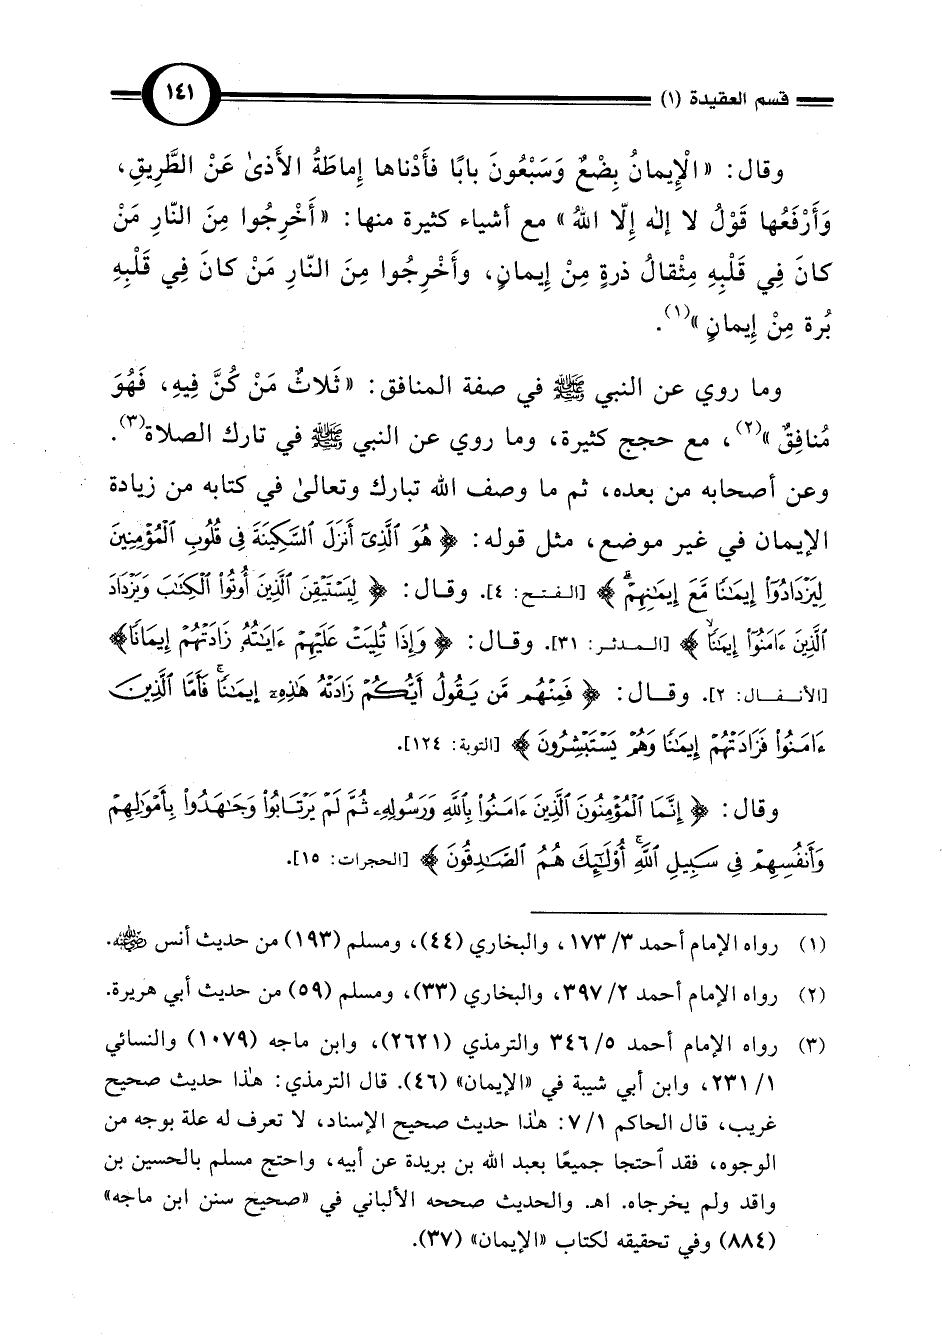 قسم العقيدة (١)
١٤١
وقال: «الْإِيمانُ بِضْعٌ وَسَبْعُونَ بابًا فأَدْناها إِماطَةُ الأَذىٰ عَنْ الطَّرِيقِ،
وَأَرْفَعُها قَوْلُ لا إلٰه إِلّا اللهُ» مع أشياء كثيرة منها: «أَخْرِجُوا مِنَ النّارِ مَنْ
كانَ فِي قَلْبِهِ مِثْقالُ ذرةٍ مِنْ إِيمانٍ، وأَخْرِجُوا مِنَ النّارِ مَنْ كانَ فِي قَلْبِهِ
بُرة مِنْ إِيمانٍ»(١).
وما روي عن النبي ﷺ في صفة المنافق: «ثَلاثٌ مَنْ كُنَّ فِيهِ، فَهُوَ
مُنافِقٌ»(٢)، مع حجج كثيرة، وما روي عن النبي ﷺ في تارك الصلاة(٣).
وعن أصحابه من بعده، ثم ما وصف الله تبارك وتعالىٰ في كتابه من زيادة
الإيمان في غير موضع، مثل قوله: ﴿هُوَ ٱلَّذِىٓ أَنزَلَ ٱلسَّكِينَةَ فِى قُلُوبِ ٱلْمُؤْمِنِينَ
لِيَزْدَادُوٓا۟ إِيمَٰنًا مَّعَ إِيمَٰنِهِمْ ۗ﴾ [الفتح: ٤]. وقال: ﴿لِيَسْتَيْقِنَ ٱلَّذِينَ أُوتُوا۟ ٱلْكِتَٰبَ وَيَزْدَادَ
ٱلَّذِينَ ءَامَنُوٓا۟ إِيمَٰنًا ۙ﴾ [المدثر: ٣١]. وقال: ﴿وَإِذَا تُلِيَتْ عَلَيْهِمْ ءَايَٰتُهُۥ زَادَتْهُمْ إِيمَانًا﴾
[الأنفال: ٢]. وقال: ﴿فَمِنْهُم مَّن يَقُولُ أَيُّكُمْ زَادَتْهُ هَٰذِهِۦٓ إِيمَٰنًا ۚ فَأَمَّا ٱلَّذِينَ
ءَامَنُوا۟ فَزَادَتْهُمْ إِيمَٰنًا وَهُمْ يَسْتَبْشِرُونَ﴾ [التوبة: ١٢٤].
وقال: ﴿إِنَّمَا ٱلْمُؤْمِنُونَ ٱلَّذِينَ ءَامَنُوا۟ بِٱللَّهِ وَرَسُولِهِۦ ثُمَّ لَمْ يَرْتَابُوا۟ وَجَٰهَدُوا۟ بِأَمْوَٰلِهِمْ
وَأَنفُسِهِمْ فِى سَبِيلِ ٱللَّهِ ۚ أُو۟لَٰٓئِكَ هُمُ ٱلصَّٰدِقُونَ﴾ [الحجرات: ١٥].
(١) رواه الإمام أحمد ٣/ ١٧٣، والبخاري (٤٤)، ومسلم (١٩٣) من حديث أنس رضي الله عنه.
(٢) رواه الإمام أحمد ٢/ ٣٩٧، والبخاري (٣٣)، ومسلم (٥٩) من حديث أبي هريرة.
(٣) رواه الإمام أحمد ٥/ ٣٤٦ والترمذي (٢٦٢١)، وابن ماجه (١٠٧٩) والنسائي
١/ ٢٣١، وابن أبي شيبة في «الإيمان» (٤٦). قال الترمذي: هٰذا حديث صحيح
غريب، قال الحاكم ١/ ٧: هٰذا حديث صحيح الإسناد، لا تعرف له علة بوجه من
الوجوه، فقد ٱحتجا جميعًا بعبد الله بن بريدة عن أبيه، واحتج مسلم بالحسين بن
واقد ولم يخرجاه. اهـ. والحديث صححه الألباني في «صحيح سنن ابن ماجه»
(٨٨٤) وفي تحقيقه لكتاب «الإيمان» (٣٧).